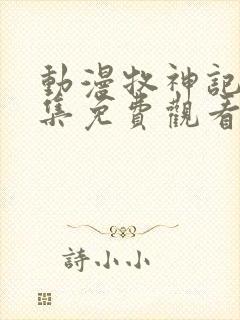 動漫牧神記
集免費觀看
詩小小